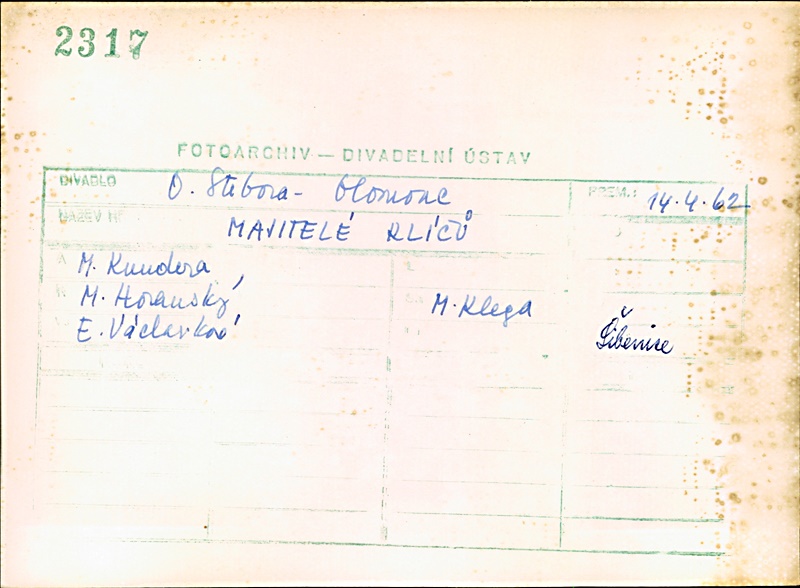 2317
FOTOARCHIV — DIVADELNÍ ÚSTAV
DIVADLO O. Stibora - Olomouc PREM.: 14.4.62
NÁZEV HRY MAJITELÉ KLÍČŮ
M. Kundera
M. Horanský M. Klega
E. Václavková Šibenice